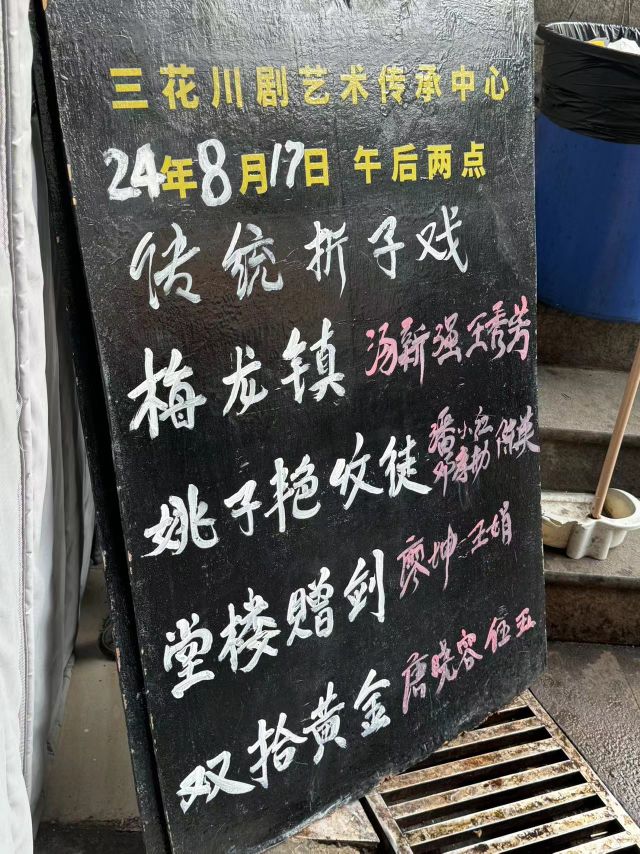 三花川剧艺术传承中心
24年8月17日 午后两点
传统折子戏
梅龙镇 汤新强 王秀芳
姚子艳收徒 潘小红 邓孝勤 陈英
堂楼赠剑 廖坤 王娟
双拾黄金 唐晓容 伍五